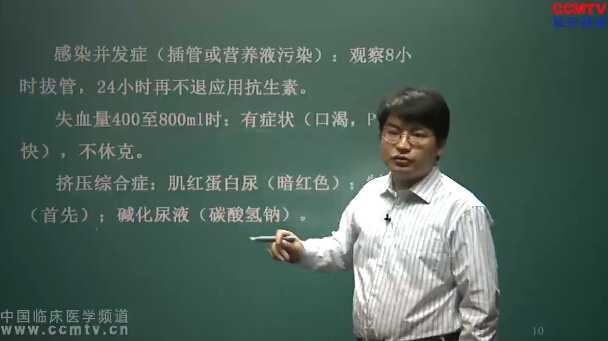 CCMTV
感染并发症（插管或营养液污染）：观察8小
时拔管，24小时再不退应用抗生素。
失血量400至800ml时：有症状（口渴，P
快），不休克。
挤压综合症：肌红蛋白尿（暗红色）；
（首先）；碱化尿液（碳酸氢钠）。
中国临床医学频道
www.ccmtv.cn
10